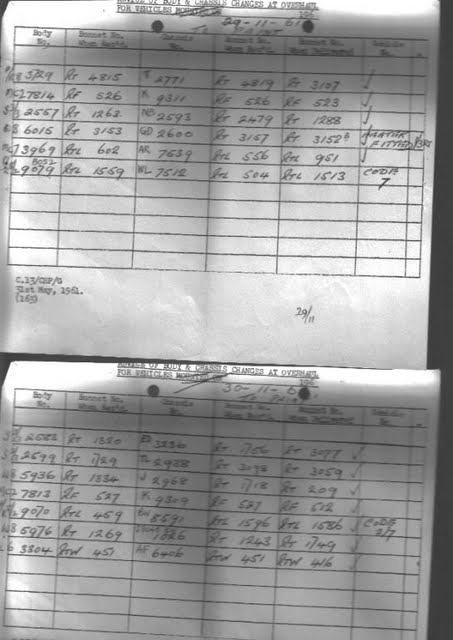 ADVICE OF BODY & CHASSIS CHANGES AT OVERHAUL
FOR VEHICLES 196
29-11-61
Body No. Bonnet No. When Rec'd. Chassis No. Bonnet No. When Rec'd. Bonnet No. When Delivered
5729 RT 4815 2771 RT 4819 RT 3107 ✓
7814 RF 526 K 9311 RF 526 RF 523 ✓
2557 RT 1263 2593 RT 2479 RT 1288 ✓
6015 RT 3153 GD 2600 RT 3157 RT 3152 HEATER FITTED
3969 RTL 602 AR 7539 RTL 556 RTL 951 ✓
9079 RTL 1559 WL 7512 RTL 504 RTL 1513 CODE 7
C.13/CHP/G
31st May, 1961.
(163)
29/11
ADVICE OF BODY & CHASSIS CHANGES AT OVERHAUL
FOR VEHICLES 196
30-11-6
Body No. Bonnet No. When Rec'd. Chassis No. Bonnet No. When Rec'd. Bonnet No. When Delivered
2582 RT 1320 3236 RT 1756 RT 3077 ✓
2599 RT 1729 2988 RT 3098 RT 3059 ✓
5936 RT 1334 2968 RT 1718 RT 209 ✓
7813 RF 527 K 9309 RF 527 RF 512 ✓
9070 RTL 459 8591 RTL 1596 RTL 1586 ✓ CODE 2/7
5976 RT 1269 1826 RT 1243 RT 1749 ✓
3304 RTW 451 AF 6406 RTW 451 RTW 416 ✓